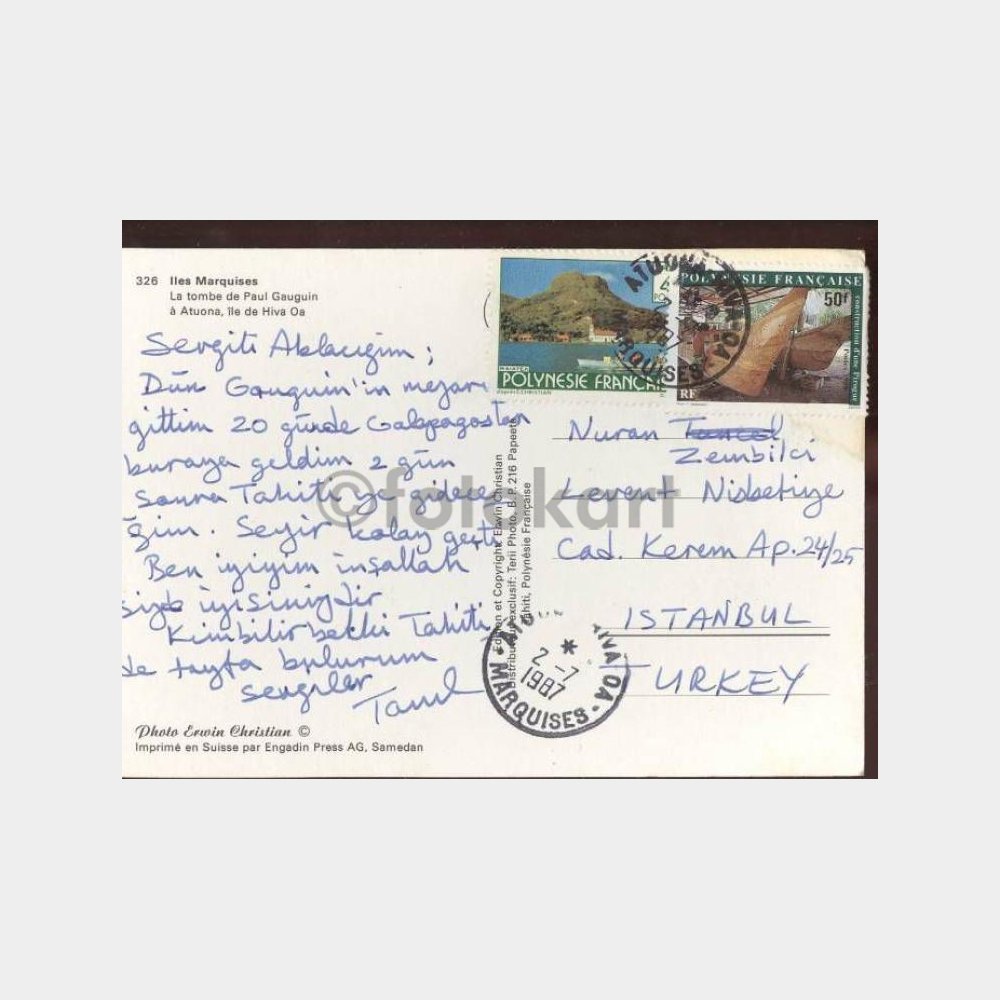 326 Iles Marquises
La tombe de Paul Gauguin
à Atuona, île de Hiva Oa
Sevgili Ablacığım;
Dün Gauguin'in mezarı
gittim 20 günde Galapagostan
buraya geldim 2 gün
sonra Tahiti'ye gidece
ğim. Seyir kolay geçti
Ben iyiyim inşallah
sizde iyisinizdir
Kimbilir belki Tahiti
de tayfa bulurum
sevgiler
Photo Erwin Christian ©
Imprimé en Suisse par Engadin Press AG, Samedan
Edition et Copyright: Erwin Christian
Distributeur exclusif: Terii Photo, B. P. 216 Papeete
Tahiti, Polynésie Française
POLYNÉSIE FRANÇAI
POLYNÉSIE FRANÇAISE
50f
construction d'une Pirogue
RF
ATUONA HIVA OA
MARQUISES
Nuran
Zembilci
Levent Nisbetiye
Cad. Kerem Ap. 24/25
ISTANBUL
TURKEY
HIVA OA
2-7
1987
MARQUISES
©fotokart